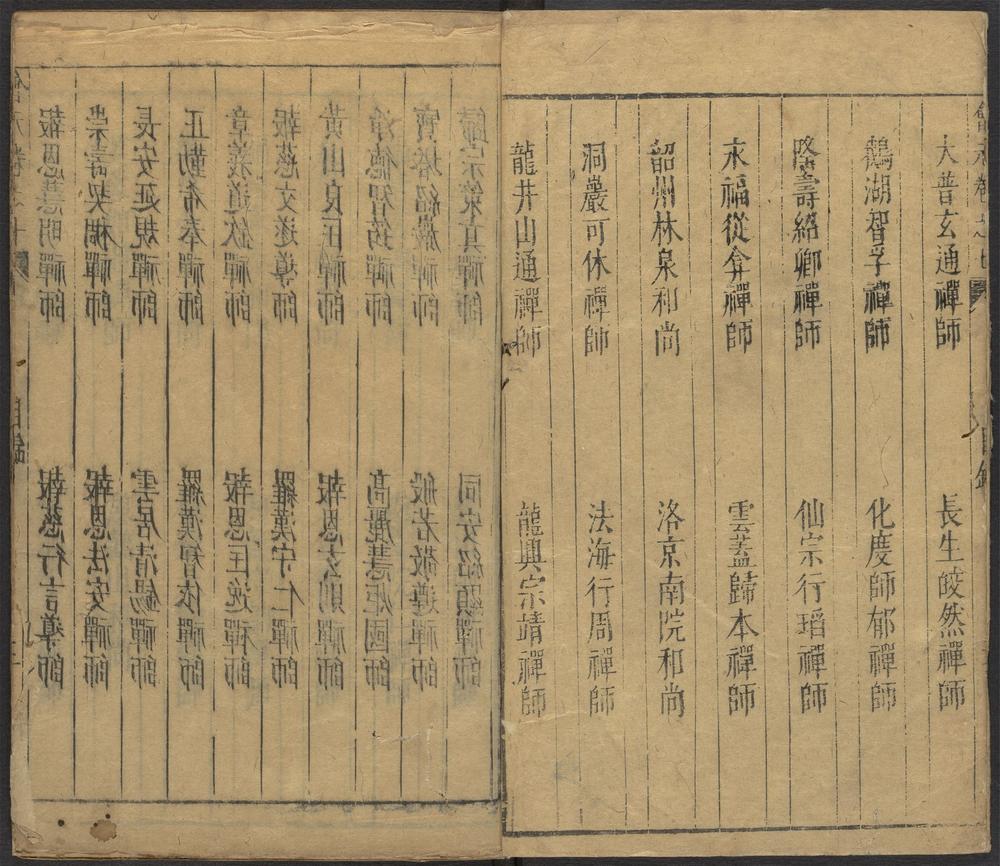 大普玄通禪師 長生皎然禪師
鵝湖智孚禪師 化度師郁禪師
隆壽紹卿禪師 仙宗行瑫禪師
永福從弇禪師 雲蓋歸本禪師
韶州林泉和尚 洛京南院和尚
洞巖可休禪師 法海行周禪師
龍井山通禪師 龍興宗靖禪師
報恩慧明禪師 報慈行言導師
崇壽契稠禪師 報恩法安禪師
長安延規禪師 雲居清錫禪師
正勤希奉禪師 羅漢智依禪師
章義道欽禪師 報恩匡逸禪師
報慈文遂導師 羅漢守仁禪師
黃山良匡禪師 報恩玄則禪師
淨德智筠禪師 高麗慧炬國師
寶塔紹巖禪師 般若敬遵禪師
歸宗策真禪師 同安紹顯禪師
目錄